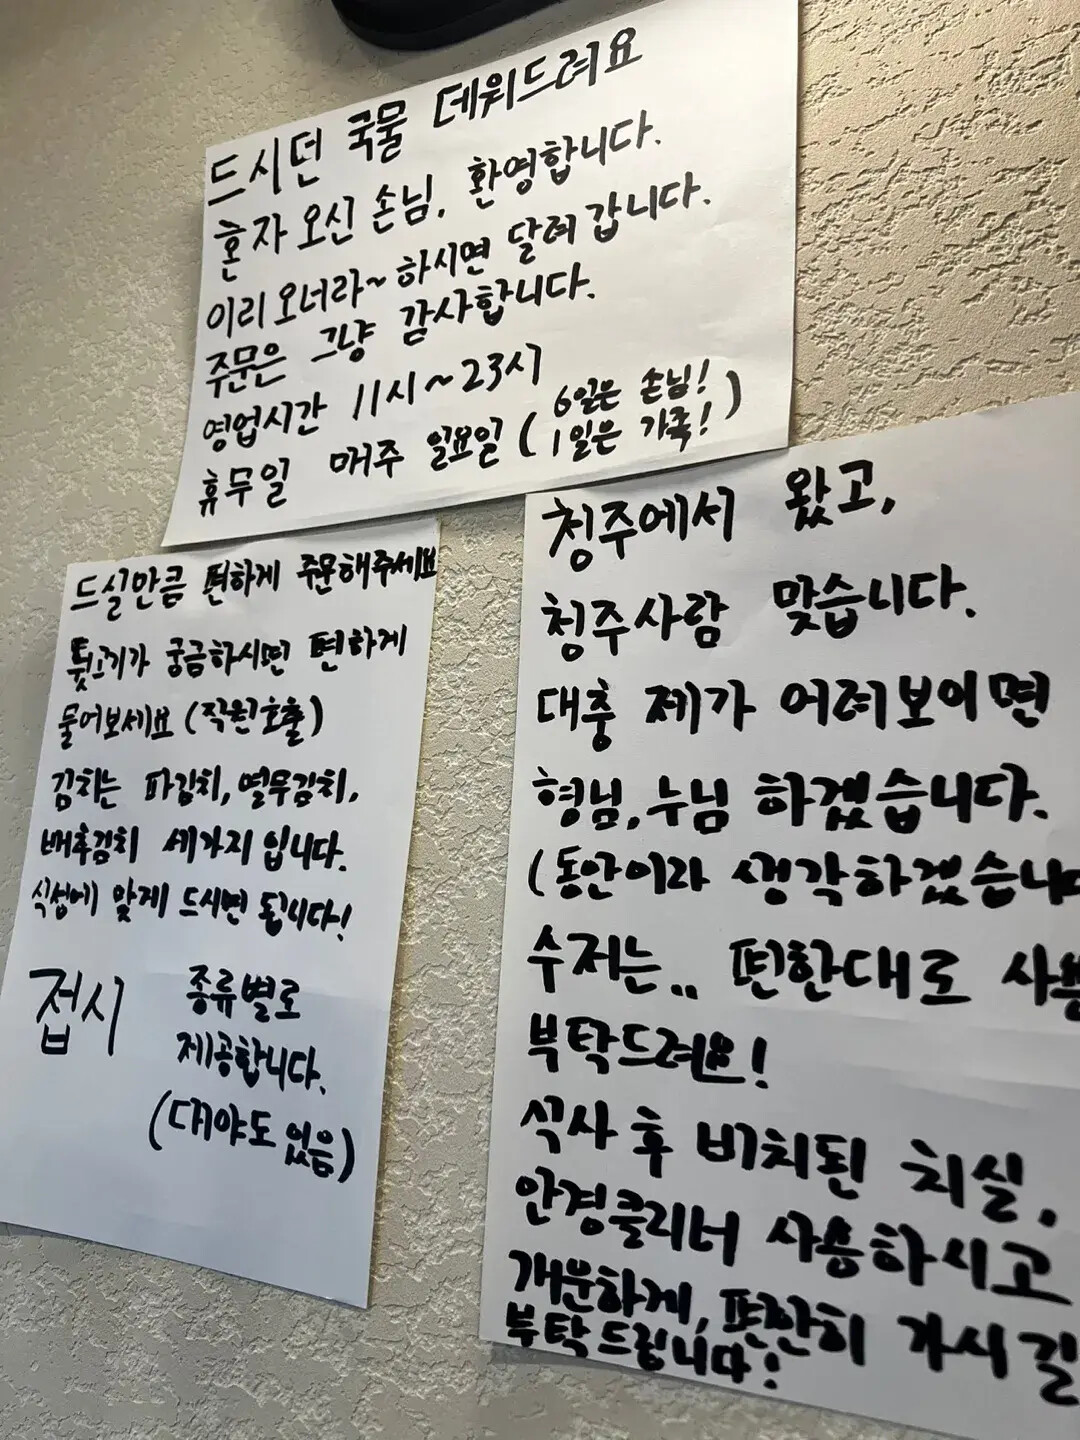 드시던 국물 데워드려요
혼자 오신 손님, 환영합니다.
이리 오너라~ 하시면 달려 갑니다.
주문은 그냥 감사합니다.
영업시간 11시~23시
휴무일 매주 일요일 (6일은 손님!
1일은 가족!)
드실만큼 편하게 주문해주세요
뒷고기가 궁금하시면 편하게
물어보세요 (직원호출)
김치는 파김치, 열무김치,
배추김치 세가지 입니다.
식성에 맞게 드시면 됩니다!
접시 종류별로
제공합니다.
(대야도 있음)
청주에서 왔고,
청주사람 맞습니다.
대충 제가 어려보이면
형님, 누님 하겠습니다.
(동안이라 생각하겠습니다
수저는.. 편한대로 사용
부탁드려요!
식사 후 비치된 치실,
안경클리너 사용하시고
개운하게, 편안히 가시길
부탁드립니다!